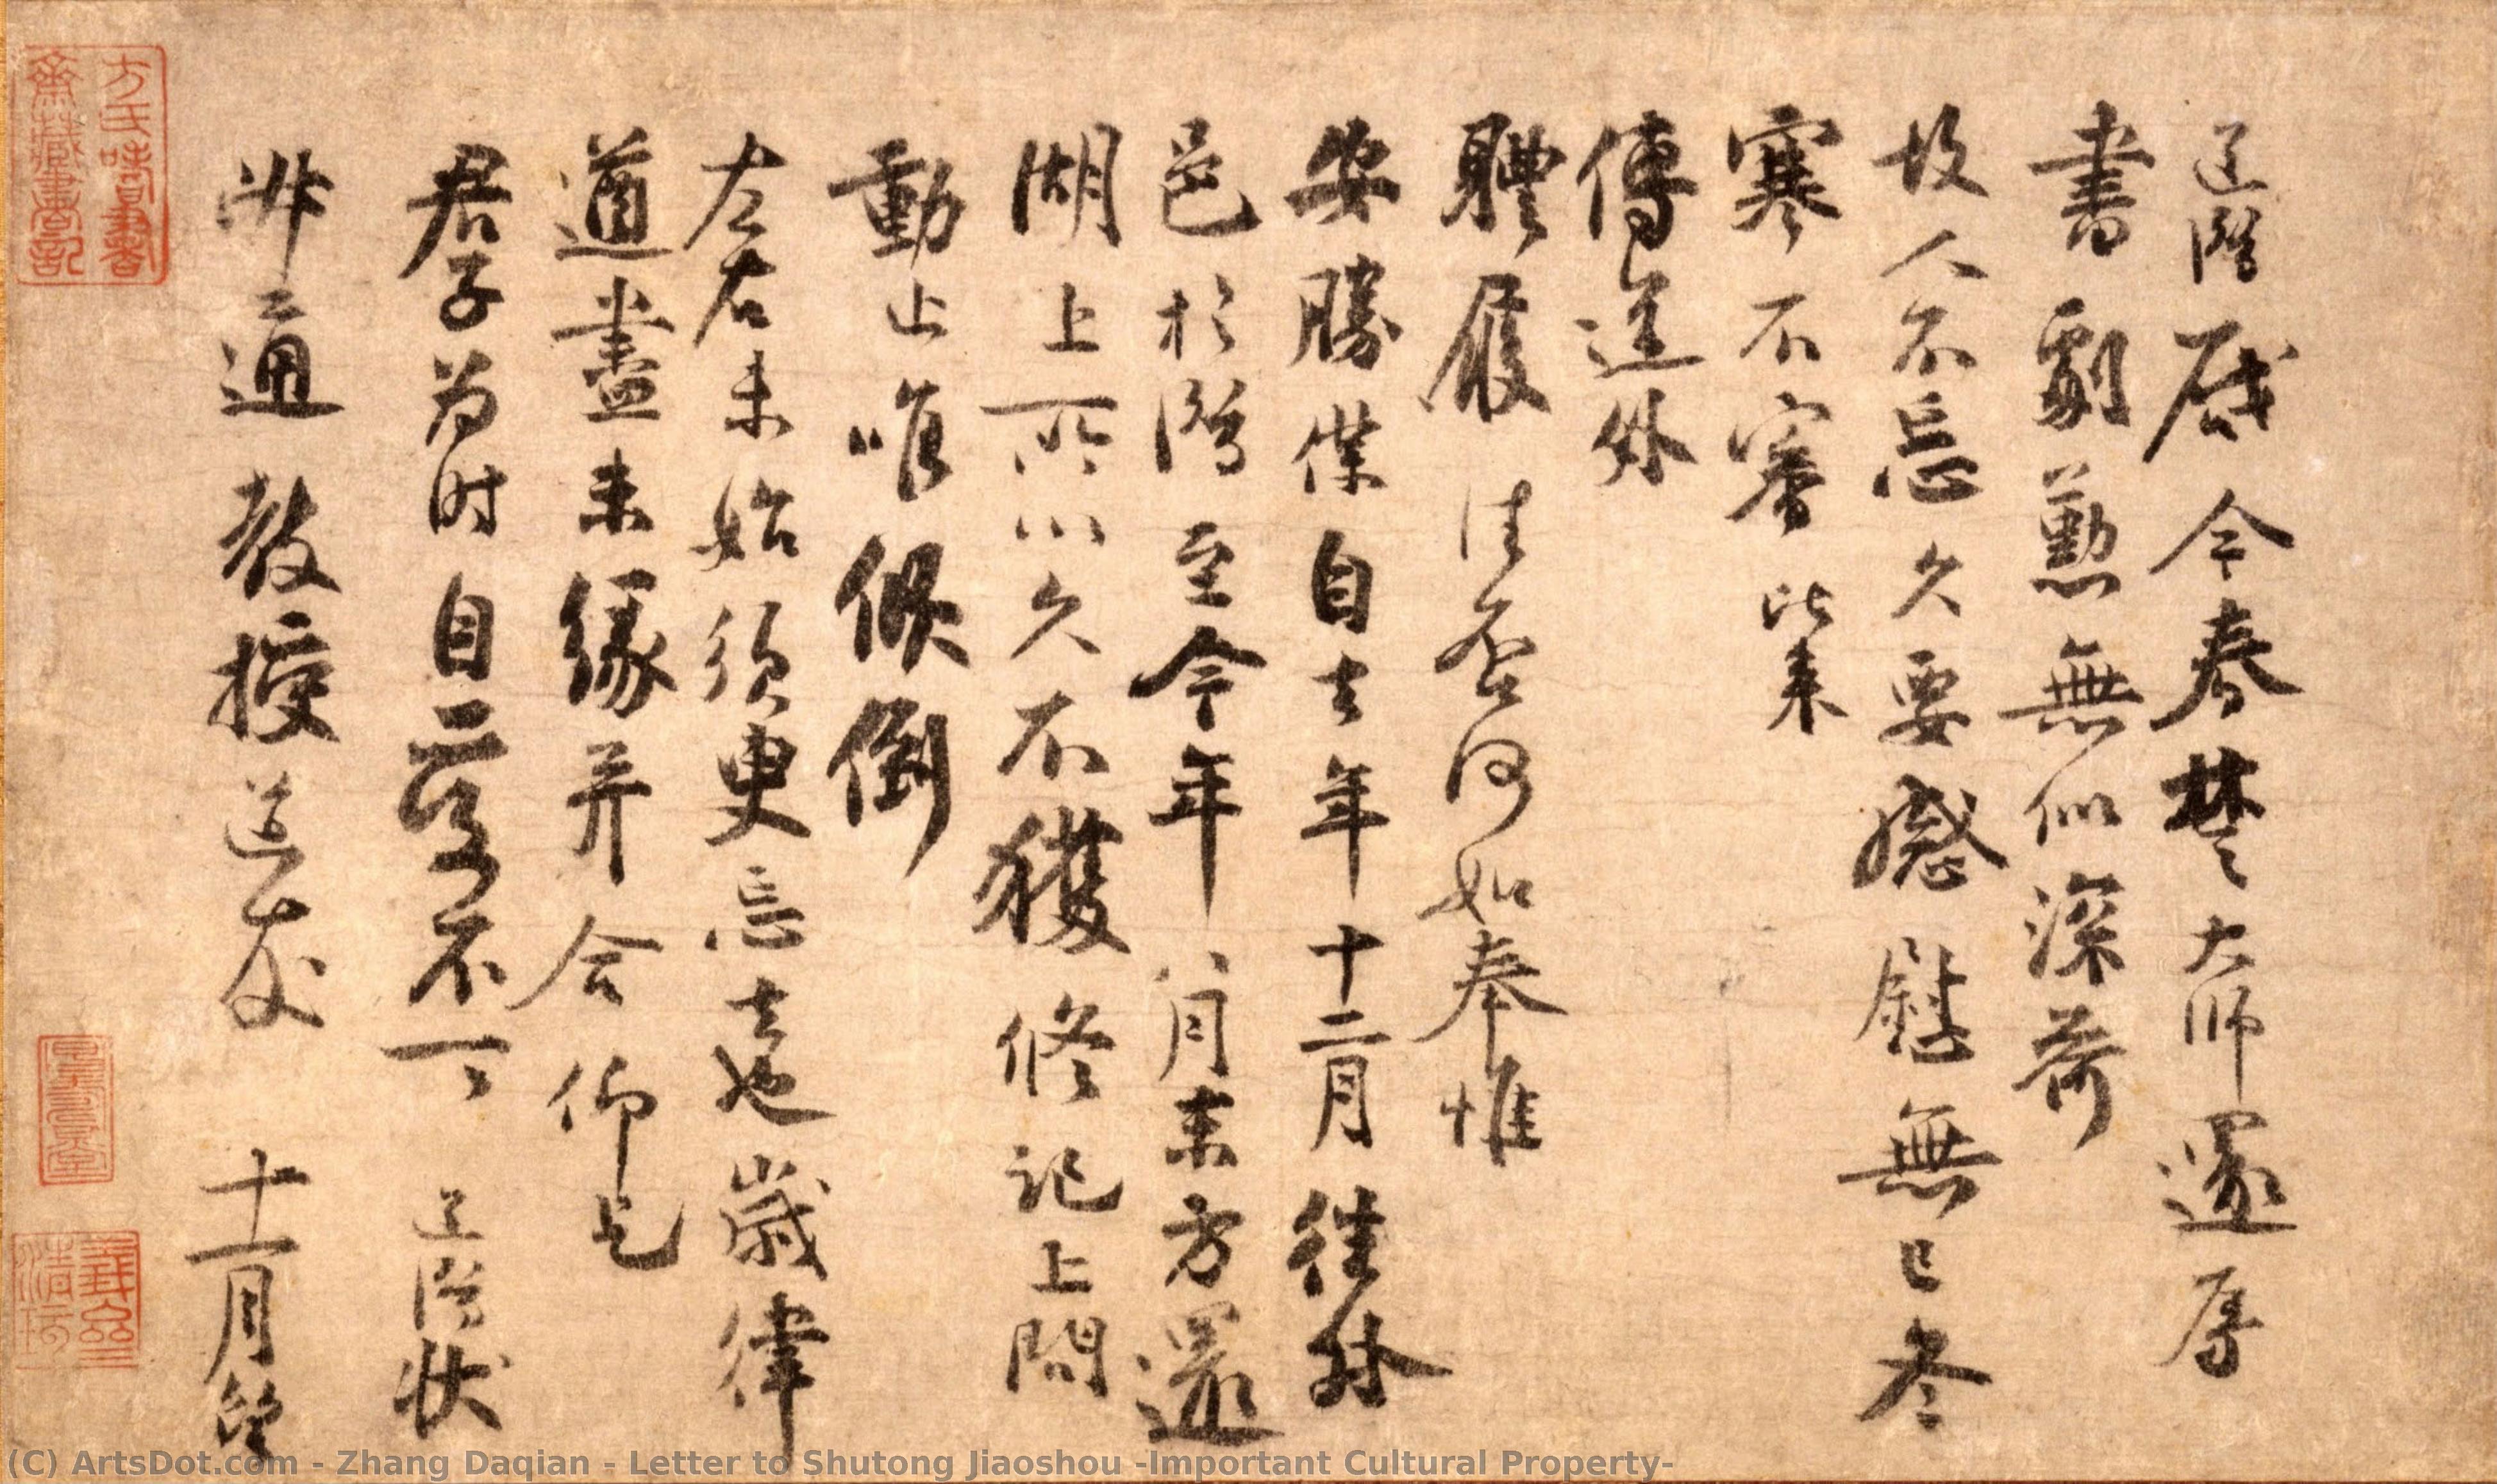 道潛啓今春楚大師還辱
書劇懃無似深荷
故人不忘久要感慰無已冬
寒不審比来
傳道外
體履佳否何如奉惟
安勝僕自去年十二月往外
邑於潛至今年八月末方還
湖上所以久不獲修記上問
動止唯傾倒
左右未始須臾忘去也歲律
遒盡未緣并会仰乞
君子为时自愛不一 道潛狀
淑通教授道友 十一月望
(C) ArtsDot.com - Zhang Daqian - Letter to Shutong Jiaoshou -Important Cultural Property-